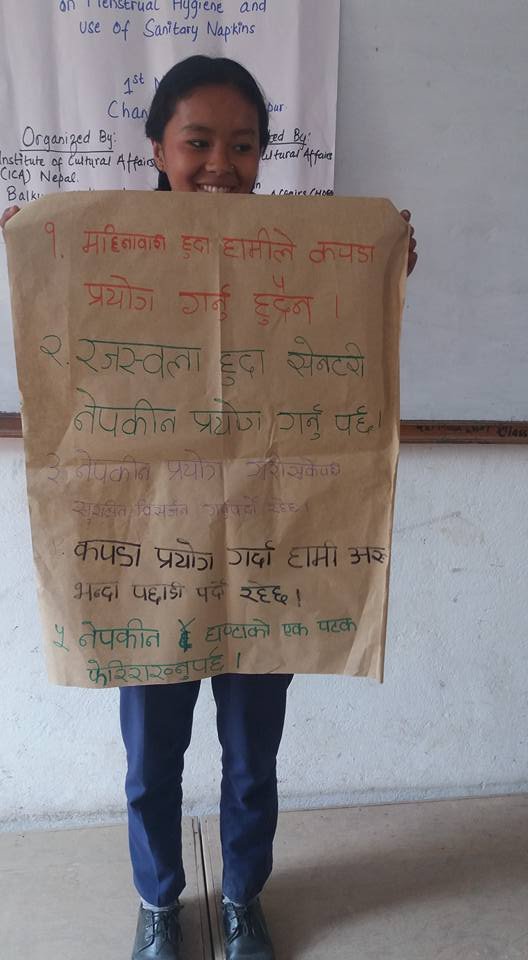 on Menstrual Hygiene and
Use of Sanitary Napkins
1st
Chan
pur
Organized By:
ted By:
Institute of Cultural Affairs
ultural Affairs
(ICA) Nepal.
Balku
१. महिनावारी हुदा हामीले कपडा
प्रयोग गर्नु हुदैन ।
२. रजस्वला हुदा सेनटरी
नेपकीन प्रयोग गर्नु पर्छ।
३. नेपकीन प्रयोग गरीसकेपछी
सुरक्षित विसर्जन गर्नुपर्दो रहेछ।
कपडा प्रयोग गर्दा हामी अरु
भन्दा पछाडी पर्दो रहेछ।
५ नेपकीन ६ घण्टाको एक पटक
फेरिराख्नुपर्छ ।
Class